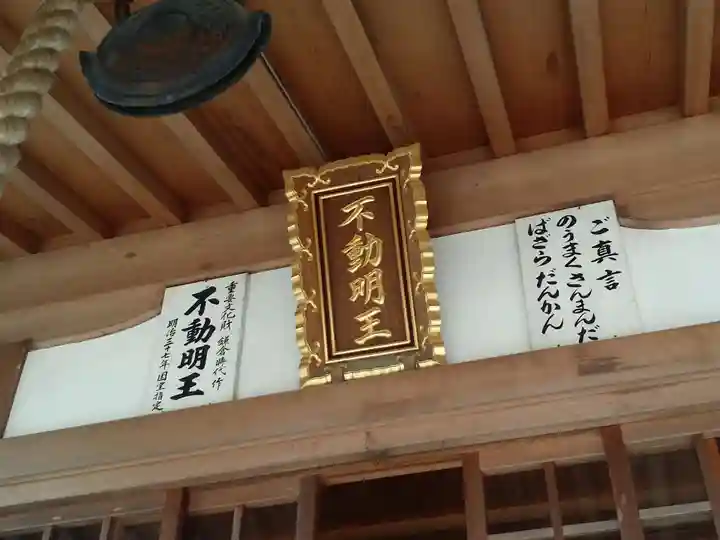 不動明王
ご真言
のうまくさんまんだ
ばざらだんかん
重要文化財 鎌倉時代作
不動明王
明治三十七年国宝指定